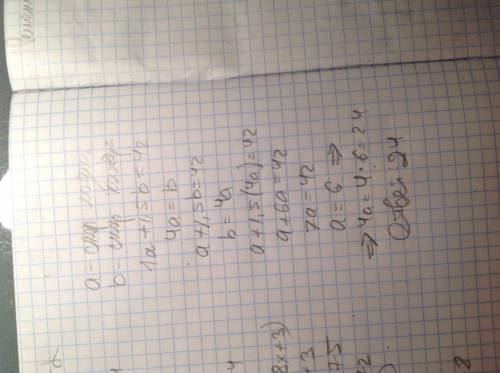 a - скор
b - скор
1a + 1,5b = 42
4a = b
a + 1,5b = 42
b = 4a
a + 1,5(4a) = 42
a + 6a = 42
7a = 42
a = 6 ⇒
⇒ 4a = 4 · 6 = 24
Ответ: 24
8x+3)
+3
75
4
8